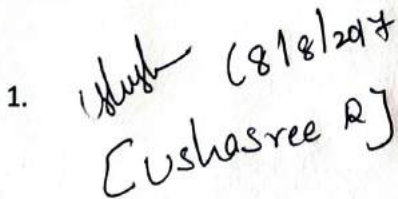 1. (8/8/2017
[Ushasree R]